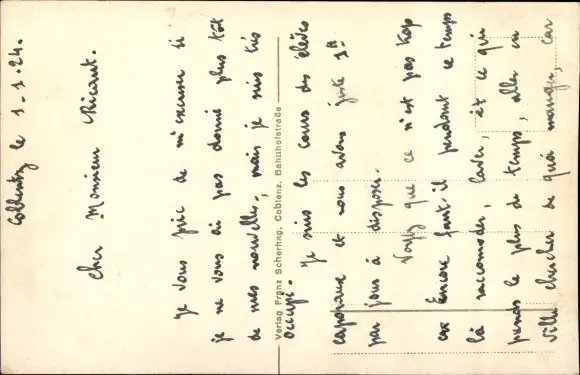 Coblentz le 1-1-24.
Cher Monsieur Ricaut.
Je vous prie de m'excuser si
je ne vous ai pas donné plus tôt
de mes nouvelles, mais je suis très
occupé.
Verlag Franz Scherhag, Coblenz, Bahnhofstraße
Je suis les cours des élèves
caporaux et nous avons juste 1h
par jour à disposer.
Voyez que ce n'est pas trop
car Encore faut-il pendant ce temps
là raccomoder, laver, et ce qui
prends le plus de temps, aller en
ville chercher de quoi manger, car